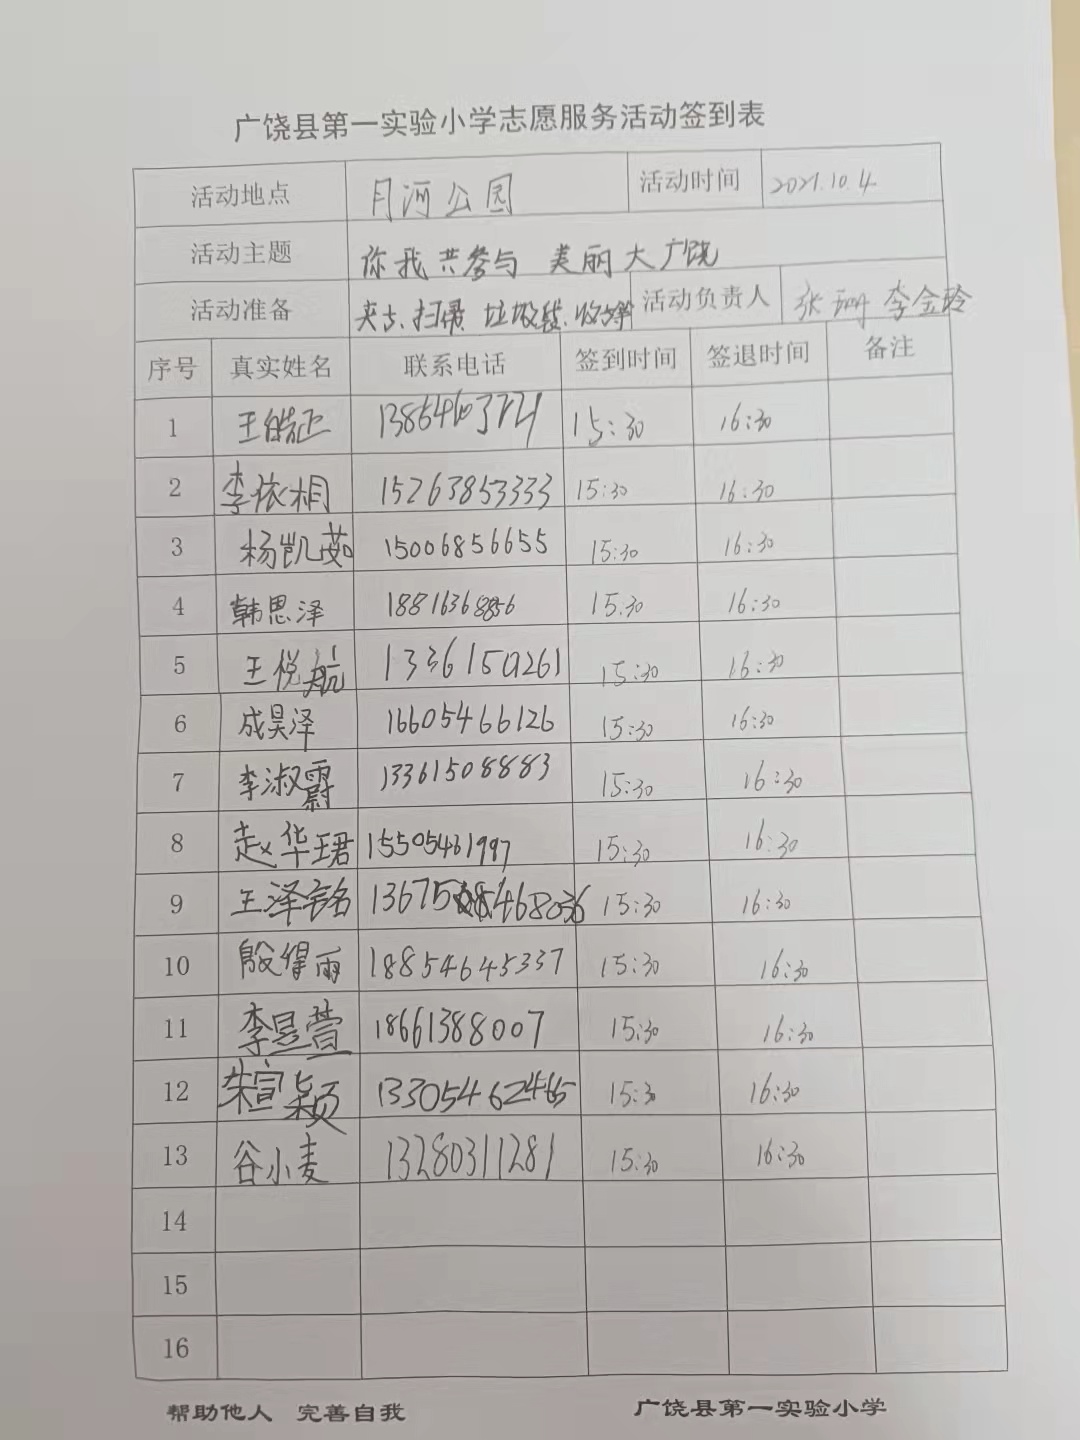 广饶县第一实验小学志愿服务活动签到表
活动地点 月河公园 活动时间 2021.10.4.
活动主题 你我共参与 美丽大广饶
活动准备 夹子、扫帚 垃圾袋、 活动负责人 张珊 李金玲
序号 真实姓名 联系电话 签到时间 签退时间 备注
1 王皓正 15:30 16:30
2 李依桐 15263853333 15:30 16:30
3 杨凯茹 15006856655 15:30 16:30
4 韩思泽 15:30 16:30
5 王悦航 13361501261 15:30 16:30
6 成昊泽 16605466126 15:30 16:30
7 李淑霨 13361508883 15:30 16:30
8 赵华珺 15505461997 15:30 16:30
9 王泽铭 15:30 16:30
10 殷得雨 18854645337 15:30 16:30
11 李昱萱 18661388007 15:30 16:30
12 朱宣颖 15:30 16:30
13 谷小麦 13280311281 15:30 16:30
14
15
16
帮助他人 完善自我 广饶县第一实验小学